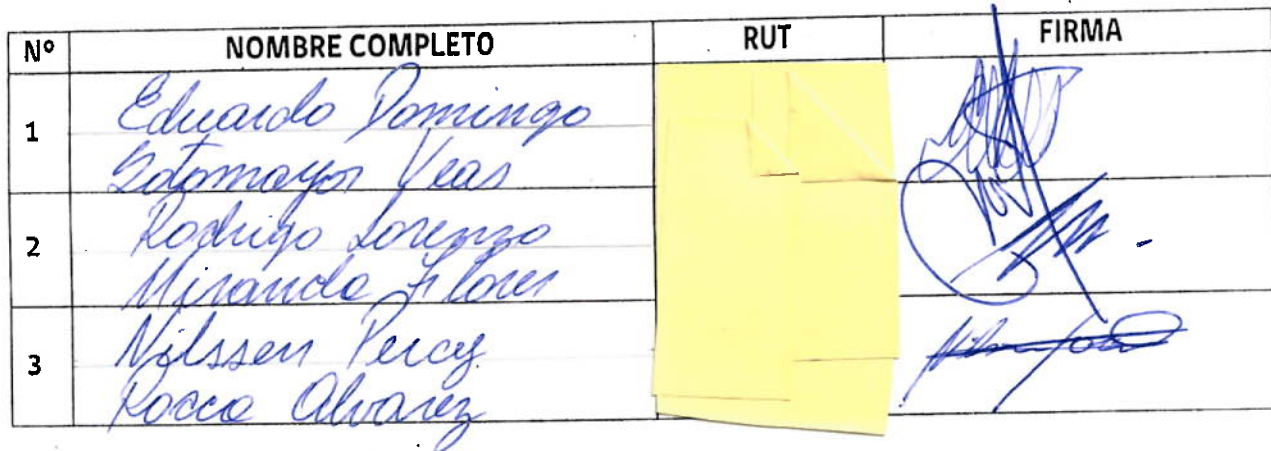 Nº NOMBRE COMPLETO RUT FIRMA
1 Eduardo Domingo
Sotomayor Veas
2 Rodrigo Lorenzo
Miranda Flores
3 Nilssen Percy
Rocco Alvarez